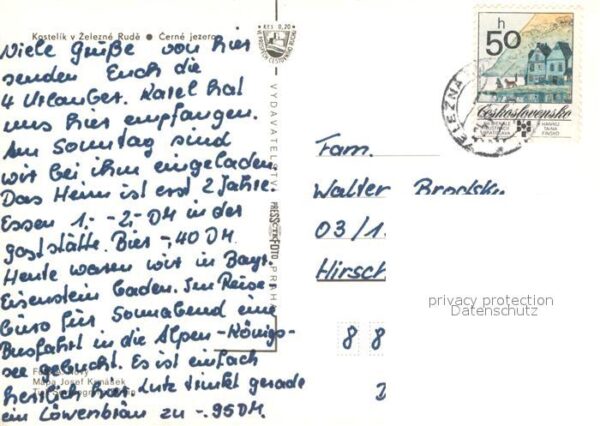 Kostelík v Železné Rudě ● Černé jezero
Viele Grüße von hier
senden Euch die
4 Urlauber. Karel hat
uns hier empfangen.
Am Sonntag sind
wir bei ihm eingeladen.
Das Heim ist erst 2 Jahre.
Essen 1,- -2,- DM in der
gaststätte. Bier -,40 DM.
Heute waren wir in Bayr.
Eisenstein baden. Im Reise-
büro für Sonnabend eine
Busfahrt in die Alpen - Königs-
see gebucht. Es ist einfach
herrlich hier. Lutz trinkt gerade
ein Löwenbräu zu -.95 DM.
Mapa Josef
KčS 0,20
VYDAVATELSTVÍ PRESSFOTO PRAHA
h
50
Československo
ŽELEZNÁ
Fam.
Walter Brodsky
03/1
Hirsch
privacy protection
Datenschutz
8 8